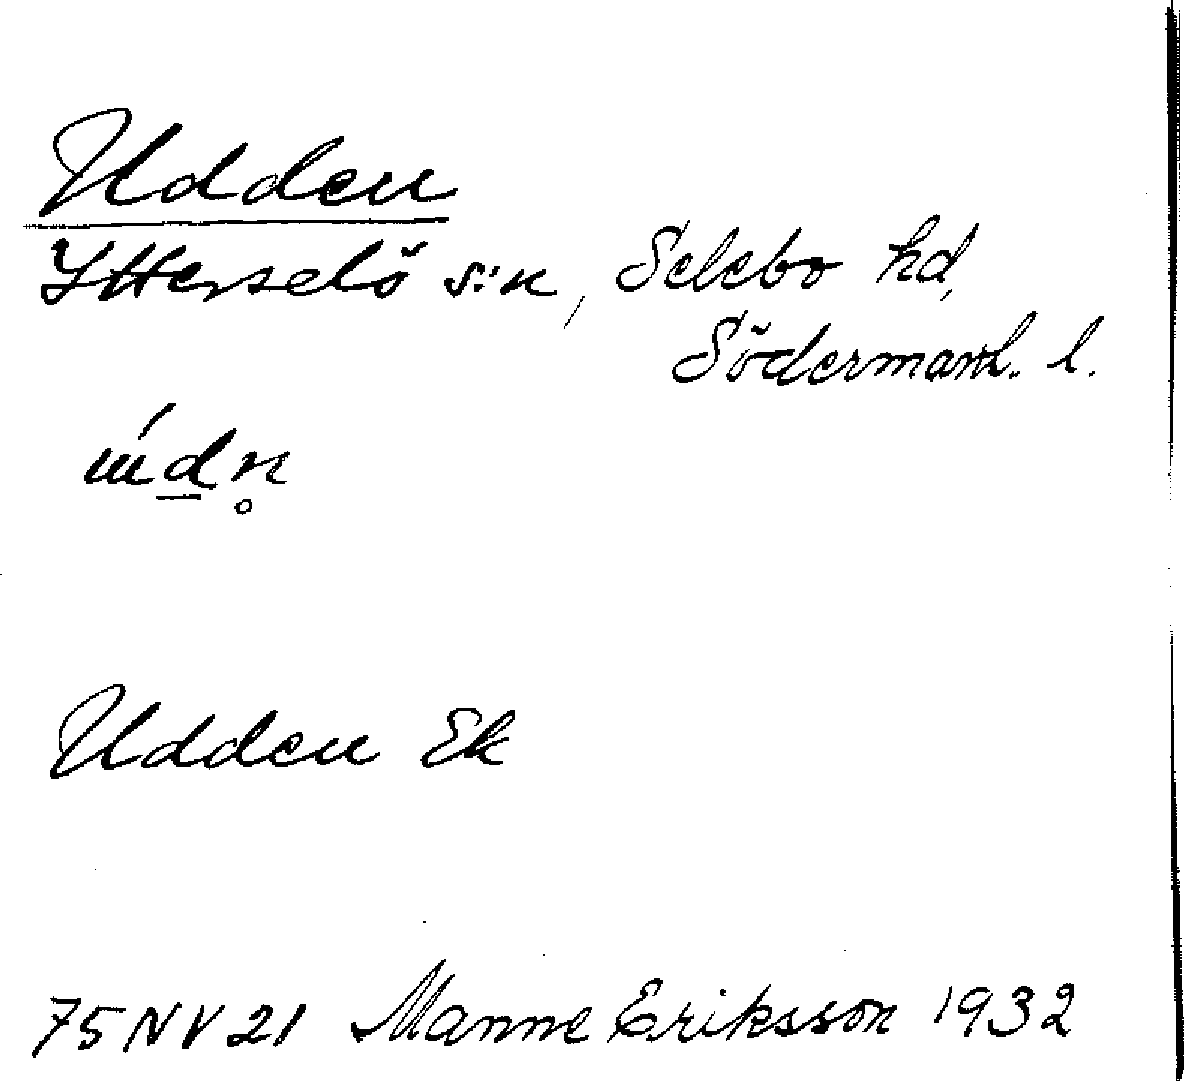 Udden
Ytterselö s:n, Selebo hd,
Södermanl. l.
Udden Ek
75 NV 21 Manne Eriksson 1932